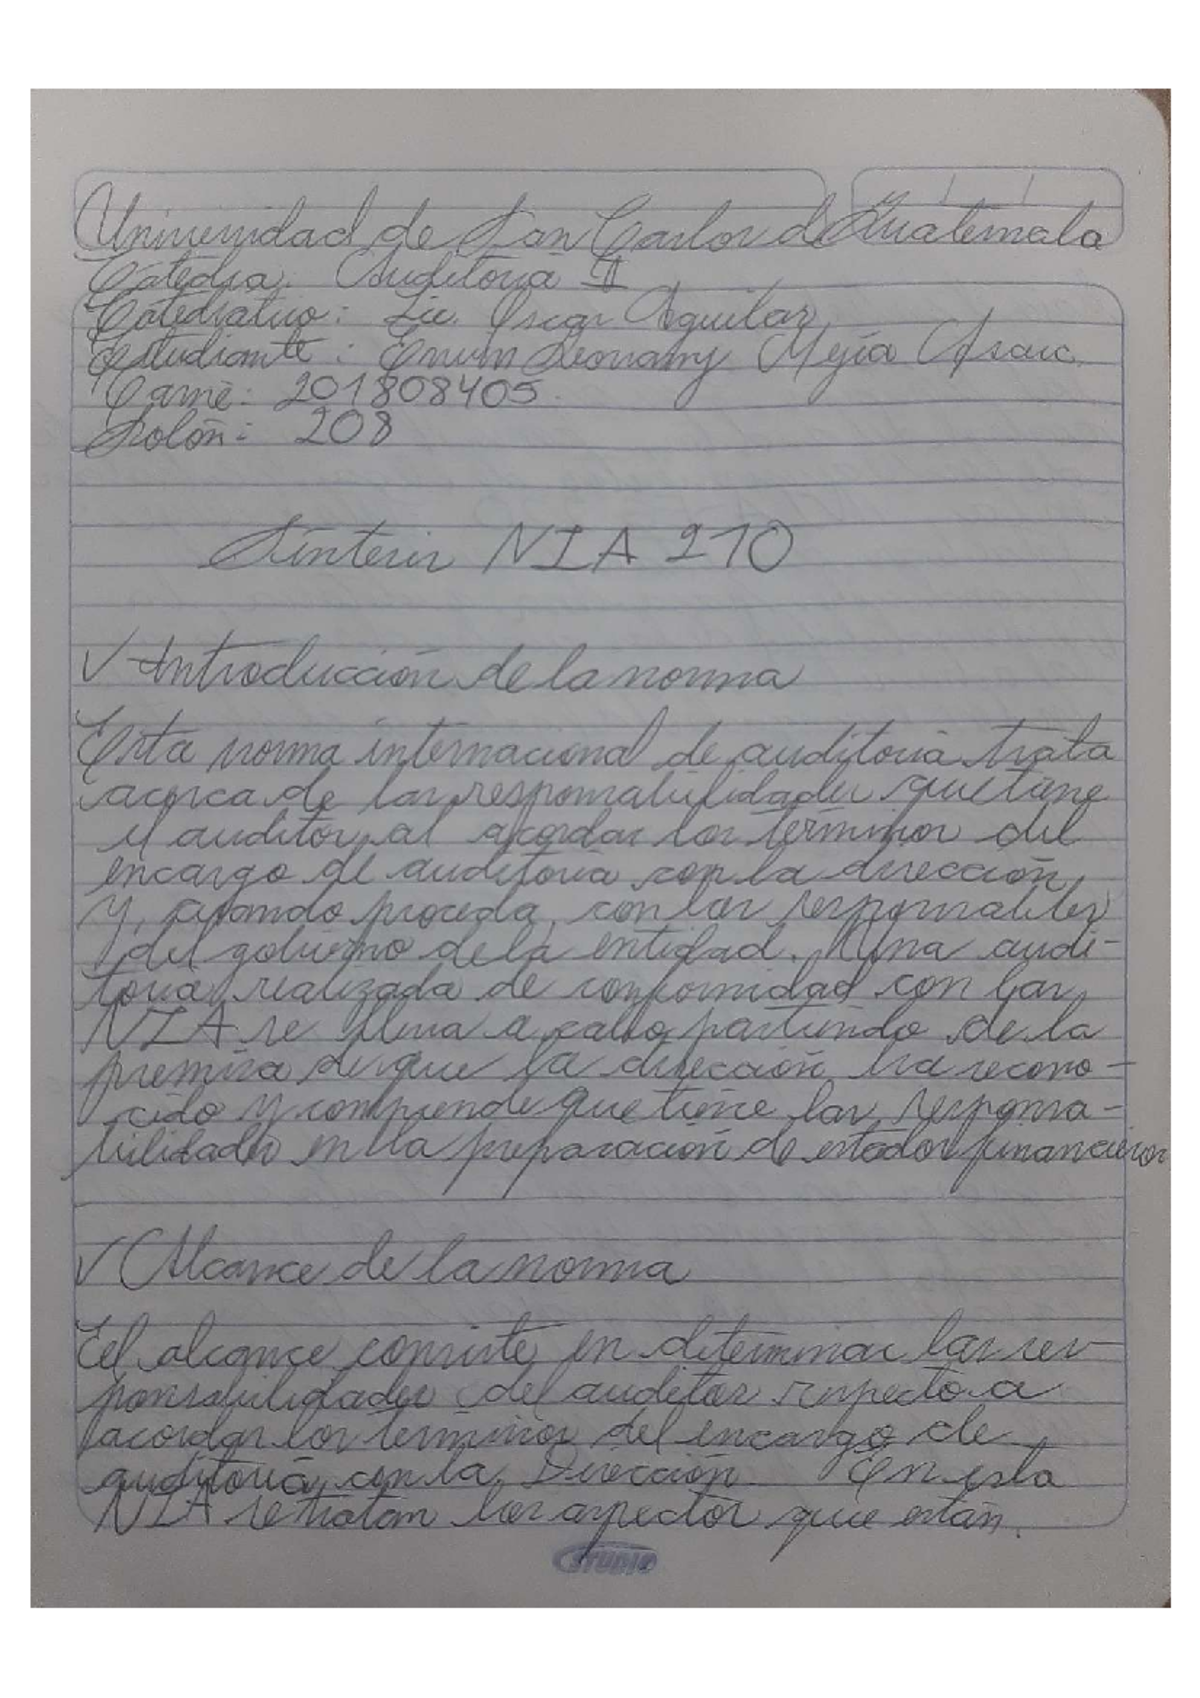 Universidad de San Carlos de Guatemala
Cátedra: Auditoría II
Catedrático: Lic. Oscar Aguilar
Estudiante: Mejía
Carné: 201808405
Salón: 208
Síntesis NIA 210
✓ Introducción de la norma
Esta norma internacional de auditoría trata
acerca de las responsabilidades que tiene
el auditor al acordar los términos del
encargo de auditoría con la dirección
y, cuando proceda, con los responsables
del gobierno de la entidad. Una audi-
toría realizada de conformidad con las
NIA se lleva a cabo partiendo de la
premisa de que la dirección ha recono-
cido y comprende que tiene las responsa-
bilidades en la preparación de estados financieros
✓ Alcance de la norma
El alcance consiste en determinar las res-
ponsabilidades del auditor respecto a
acordar los términos del encargo de
auditoría con la Dirección. En esta
NIA se tratan los aspectos que están
STUDIO